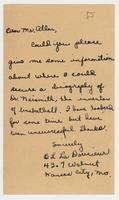 Dear Mr. Allen,
Could you please
give me some information
about where I could
secure a biography of
Dr. Naismith, the inventor
of basketball. I have looked
for some time but have
been unsuccessful. Thanks
Sincerely
4207 Walnut
Kansas City, Mo.